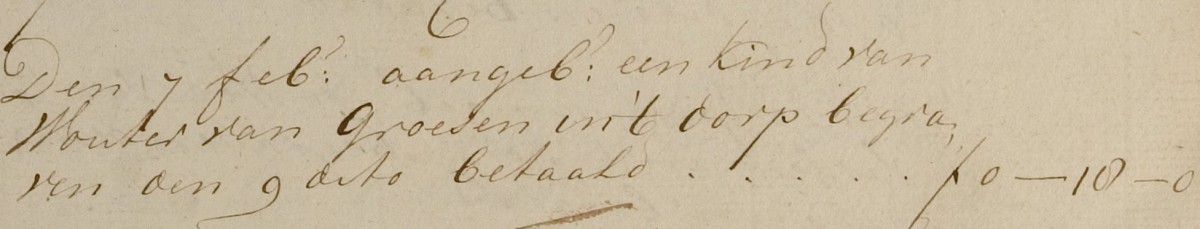 Den 7 febr: aangebr: een kind van
Wouter van Groesen in't dorp begra,
ven den 9 dito betaald . . . . . . f 0 — 18 — 0